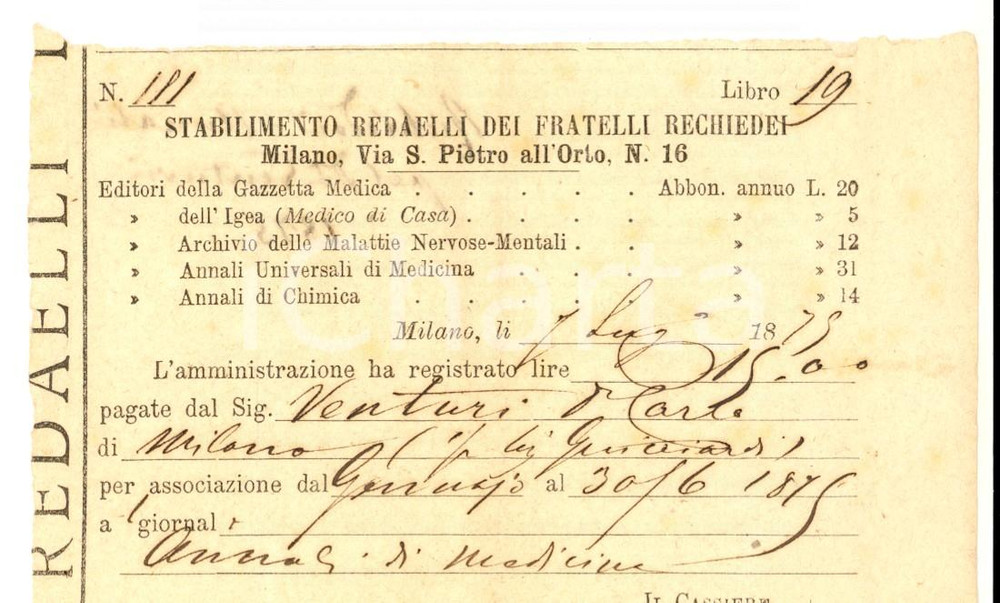 N. 111 Libro 19
STABILIMENTO REDAELLI DEI FRATELLI RECHIEDEI
Milano, Via S. Pietro all'Orto, N. 16
Editori della Gazzetta Medica . . . . . Abbon. annuo L. 20
» dell' Igea (Medico di Casa) . . . . » » 5
» Archivio delle Malattie Nervose-Mentali . . . » » 12
» Annali Universali di Medicina . . . » » 31
» Annali di Chimica . . . . . » » 14
Milano, li 7 Lug 1875
L'amministrazione ha registrato lire 15.00
pagate dal Sig. Venturi D Carlo
di Milano
per associazione dal Gennajo al 30/6 1875
a giornal
Annali di Medicina
IL CASSIERE
REDAELLI
iCharta